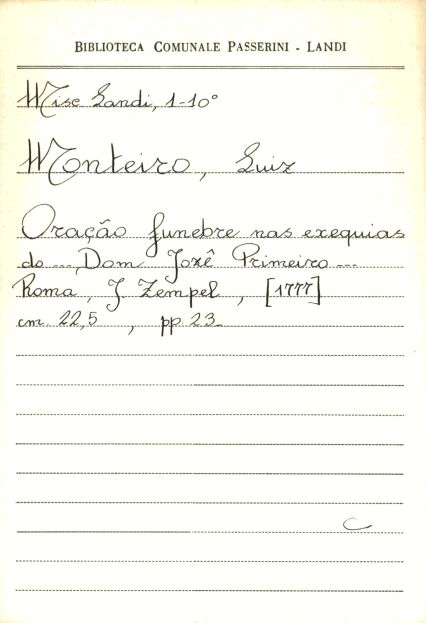 BIBLIOTECA COMUNALE PASSERINI - LANDI
Misc Landi, 1-10°
Monteiro, Luiz
Oração funebre nas exequias
do ...., Dom Jozê Primeiro ....
Roma, J. Zempel, [1777]
cm. 22,5, pp 23
C